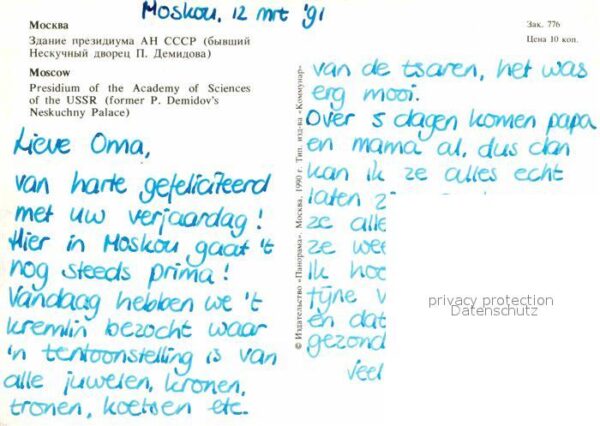 Moskou, 12 mrt '91
Москва
Здание президиума АН СССР (бывший
Нескучный дворец П. Демидова)
Moscow
Presidium of the Academy of Sciences
of the USSR (former P. Demidov's
Neskuchny Palace)
Lieve Oma,
van harte gefeliciteerd
met uw verjaardag!
Hier in Moskou gaat 't
nog steeds prima!
Vandaag hebben we 't
kremlin bezocht waar
'n tentoonstelling is van
alle juwelen, kronen,
tronen, koetsen etc.
© Издательство «Панорама». Москва. 1990 г. Тип. изд-ва «Коммунар»
Зак. 776
Цена 10 коп.
van de tsaren, het was
erg mooi.
Over 5 dagen komen papa
en mama al, dus dan
kan ik ze alles echt
laten
ze alle
ze
Ik
fijne
en dat
gezond
veel
privacy protection
Datenschutz